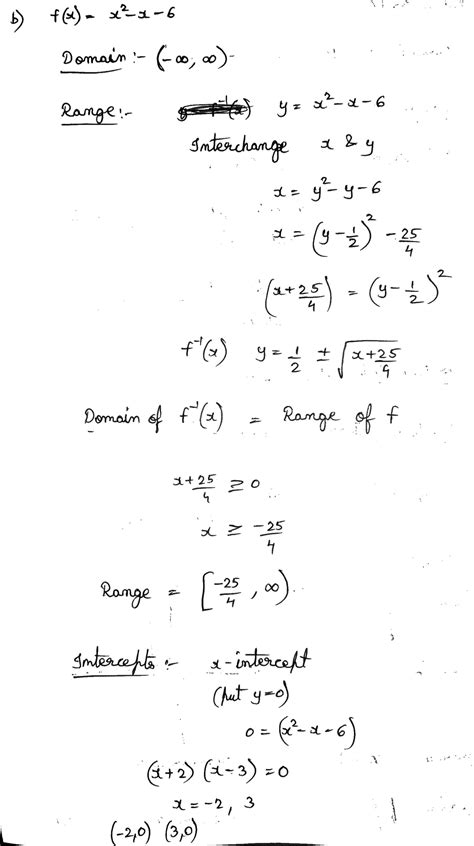 b) f(x) = x² - x - 6
Domain :- (-∞, ∞)-
Range :- y = x² - x - 6
Interchange x & y
x = y² - y - 6
x = (y - 1/2)² - 25/4
(x + 25/4) = (y - 1/2)²
f⁻¹(x) y = 1/2 ± √(x + 25/4)
Domain of f⁻¹(x) = Range of f
x + 25/4 ≥ 0
x ≥ -25/4
Range = [-25/4, ∞)
Intercepts :- x-intercept
(put y=0)
0 = (x² - x - 6)
(x+2) (x-3) = 0
x = -2, 3
(-2,0) (3,0)